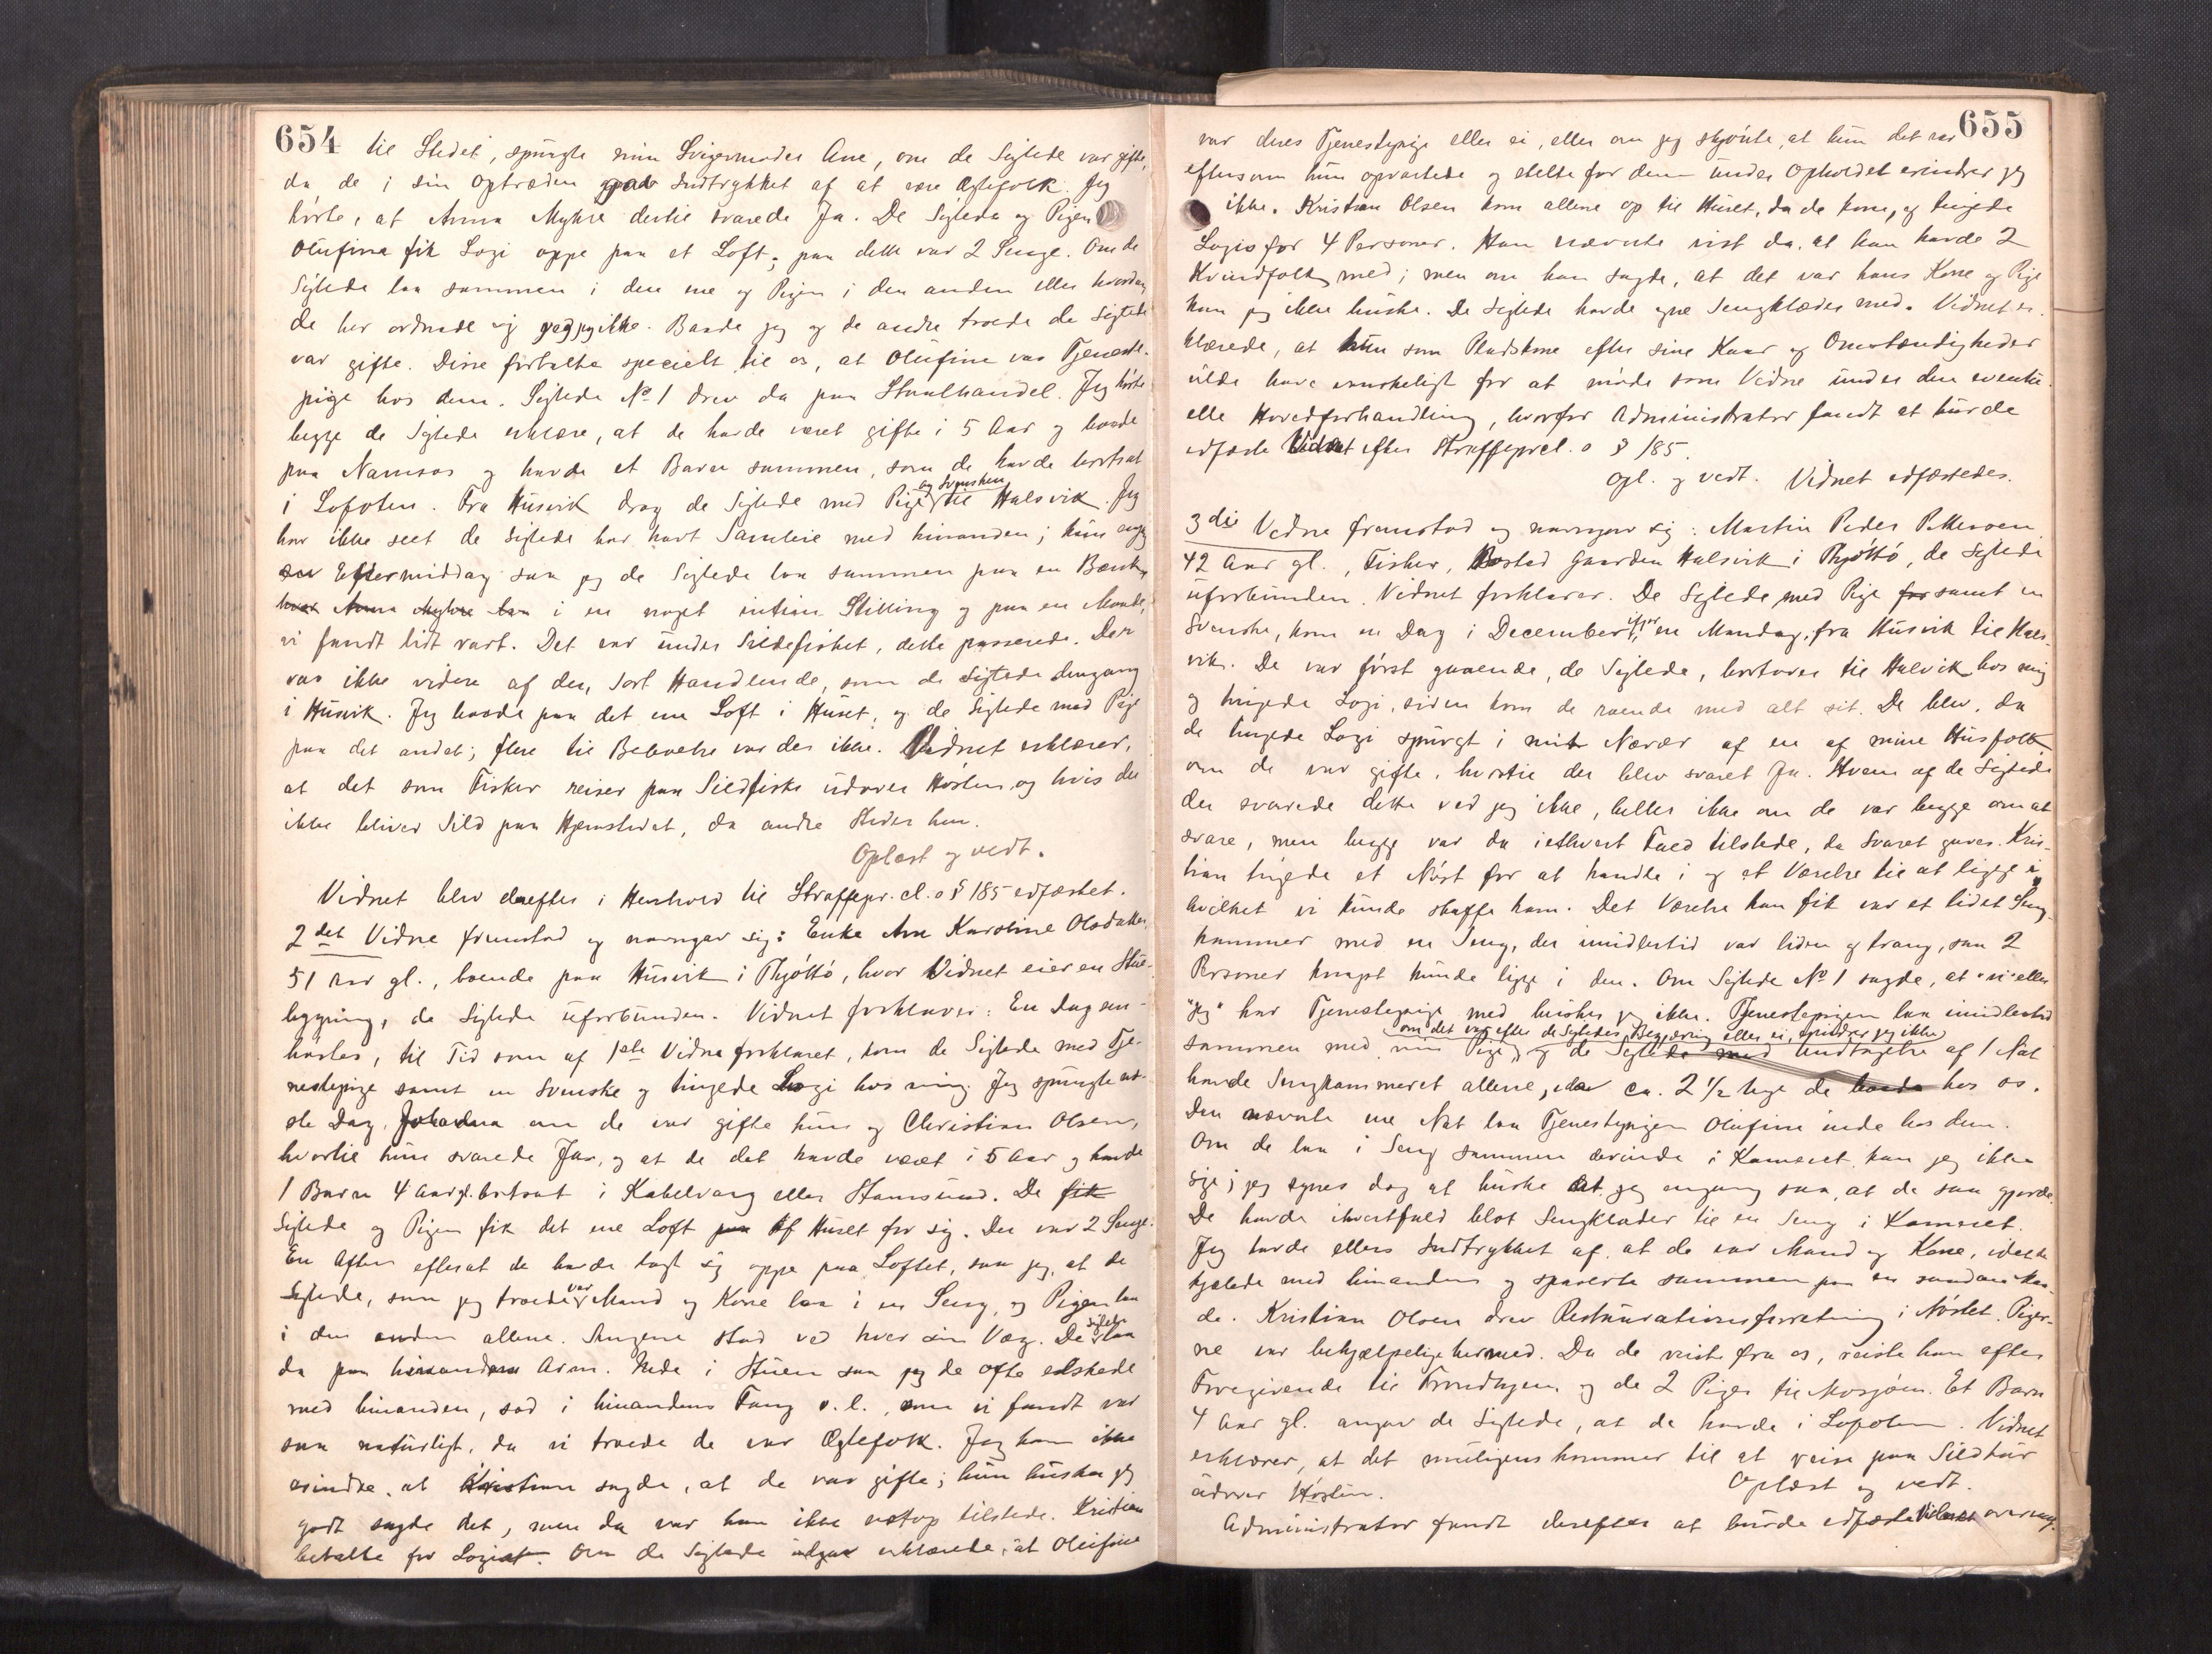 654
til Stedet, spurgte min Svigermoder Ane, om de Sigtede var gifte,
da de i sin Optræden gav Indtrykket af at være Ægtefolk. Jeg
hørte, at Anna Myhre dertil svarede Ja. De Sigtede og Pigen
Olufina fik Logi oppe paa et Loft; paa dette var 2 Senge. Om de
Sigtede laa sammen i den ene og Pigen i den anden eller hvordan
de her ordnede sig ved jeg ikke. Baade jeg og de andre troede de Sigtede
var gifte. Disse fortalte specielt til os, at Olufine var Tjeneste-
pige hos dem. Sigtede No 1 drev da paa Skralhandel. Jeg hørte
begge de Sigtede erklære, at de havde været gifte i 5 Aar og boede
paa Namsos og havde et Barn sammen, som de havde bortsat
i Lofoten. Fra Husvik drog de Sigtede med Pige og Svensken til Halsvik. Jeg
har ikke seet de Sigtede har havt Samleie med hinanden; kun engang
en Eftermiddag saa jeg de Sigtede laa sammen paa en Bænk,
hvor Anna Myhre laa i en noget intim Stilling og paa en Maade,
vi fandt lidt rart. Det var under Sildefisket, dette passerede. Der
var ikke videre af den Sort Handlende, som de Sigtede dengang
i Husvik. Jeg boede paa det ene Loft i Huset, og de Sigtede med Pige
paa det andet; flere til Beboelse var der ikke. Vidnet erklærer,
at det som Fisker reiser paa Sildfiske udover Høsten, og hvis der
ikke bliver Sild paa Hjemstedet, da andre Steder hen.
Oplæst og vedt.
Vidnet blev derefter i Henhold til Straffepr. cl. o § 185 edfæstet.
2det Vidne fremstod og navngav sig: Enke Ane Karoline Olsdatter,
51 Aar gl., boende paa Husvik i Thjøttø, hvor Vidnet eier en Stue-
bygning, de Sigtede uforbunden. Vidnet forklarer: En Dag om
høsten, til Tid som af 1ste Vidne forklaret, kom de Sigtede med Tje-
nestepige samt en Svenske og tingede Logi hos mig. Jeg spurgte næ-
ste Dag Johanna om de var gifte hun og Christian Olsen,
hvortil hun svarede Ja, og at de det havde været i 5 Aar og havde
1 Barn 4 Aar gl. bortsat i Kabelvaag eller Stamsund. De fik
Sigtede og Pigen fik det ene Loft paa af Huset for sig. Der var 2 Senge.
En Aften efterat de havde lagt sig oppe paa Loftet, saa jeg, at de
Sigtede, som jeg troede var Mand og Kone laa i en Seng, og Pigen laa
i den anden allene. Sengene stod ved hver sin Væg. De Sigtede laa
da paa hinandens Arm. Nede i Stuen saa jeg de ofte elskede
med hinanden, sad i hinandens Fang o. l., som vi fandt var
saa naturligt, da vi troede de var Ægtefolk. Jeg kan ikke
erindre, at Kristian sagde, at de var gifte; hun husker jeg
godt sagde det, men da var han ikke netop tilstede. Kristian
betalte for Logiet. Om de Sigtede udgav erklærede, at Olufine
655
var deres Tjenestepige eller ei, eller om jeg skjønte, at hun det var
eftersom hun opvartede og stelte for dem under Opholdet erindrer jeg
ikke. Kristian Olsen kom allene op til Huset, da de kom, og tingede
Logis for 4 Personer. Han nævnte vist da, at han havde 2
Kvindfolk med; men om han sagde, at det var hans Kone og Pige
kan jeg ikke huske. De Sigtede havde egne Sengklæder med. Vidnet er-
klærede, at hun som Pladskone efter sine Kaar og Omstændigheder
vilde have vanskeligt for at møde som Vidne under den eventu-
elle Hovedforhandling, hvorfor Administrator fandt at burde
edfæste Vidnet efter Straffeprcl. o § 185.
Opl. og vedt. Vidnet edfæstedes.
3die Vidne fremstod og navngav sig: Martin Peder Pettersen
42 Aar gl., Fisker, Bosted Gaarden Halsvik i Thjøttø, de Sigtede
uforbunden. Vidnet forklarer. De Sigtede med Pige for samt en
Svenske, kom en Dag i December ifjor, en Mandag, fra Husvik til Hals-
vik. De var først gaaende, de Sigtede, bortover til Halsvik hos mig
og tingede Logi, siden kom de roende med alt sit. De blev, da
de tingede Logi spurgt i mit Nærvær af en af mine Husfolk
om de var gifte, hvortil der blev svaret Ja. Hvem af de Sigtede
der svarede dette ved jeg ikke, heller ikke om de var begge om at
svare, men begge var da i ethvert Fald tilstede, da Svaret gaves. Kris-
tian tingede et Nøst for at handle i og et Værelse til at ligge i,
hvilket vi kunde skaffe ham. Det Værelse han fik var et lidet Seng-
kammer med en Seng, der imidlertid var liden og trang, saa 2
Personer knapt kunde ligge i den. Om Sigtede No 1 sagde, at "vi" eller
"jeg" har Tjenestepige med husker jeg ikke. Tjenestepigen laa imidlertid
om det var efter de Sigtedes Begjæring eller ei, erindrer jeg ikke
sammen med min Pige, og de Sigtede med Undtagelse af 1 Nat
havde Sengkammeret allene, ca. 2 1/2 Uge de boede hos os.
Den nævnte ene Nat laa Tjenestepigen Olufine inde hos dem.
Om de laa i Seng sammen derinde i Kameret kan jeg ikke
sige; jeg synes dog at huske at jeg engang saa, at de saa gjorde.
De havde ihvertfald blot Sengklæder til en Seng i Kameret.
Jeg havde ellers Indtrykket af at de var Mand og Kone, idet de
kjælede med hinanden og spaserte sammen paa en saadan Maa-
de. Kristian Olsen drev Restaurationsforretning i Nøstet. Piger-
ne var behjælpelige hermed. Da de reiste fra os, reiste han efter
Foregivende til Trondhjem og de 2 Piger til Mosjøen. Et Barn
4 Aar gl. angav de Sigtede, at de havde i Lofoten. Vidnet
erklærer, at det muligens kommer til at reise paa Sildtur
udover Høsten.
Oplæst og vedt.
Administrator fandt derefter at burde edfæste Vidnet